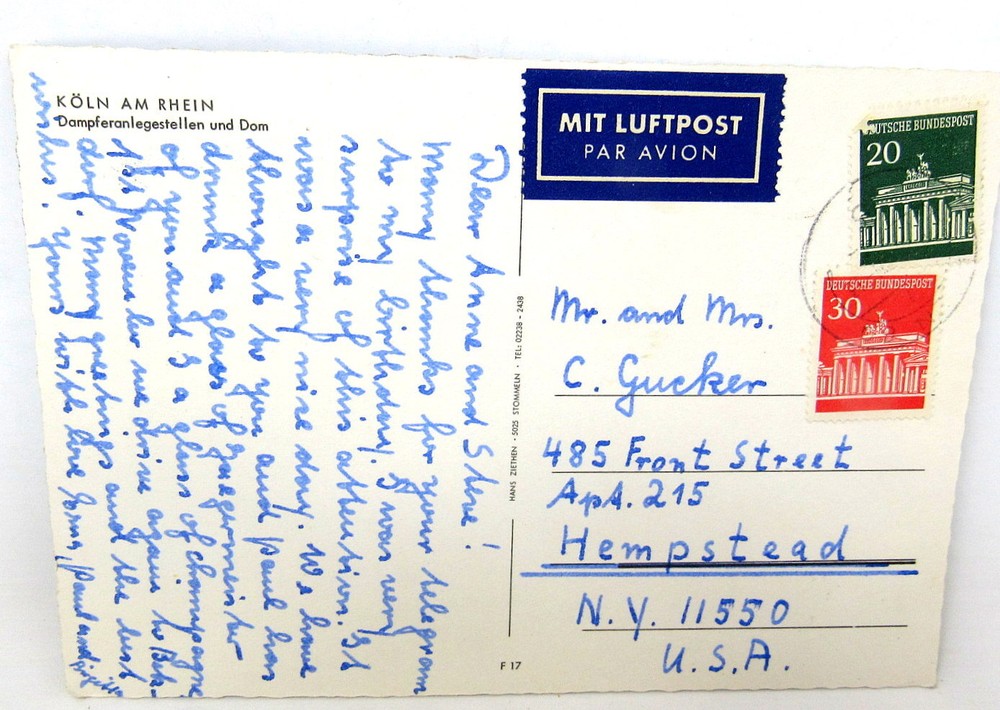 KÖLN AM RHEIN
Dampferanlegestellen und Dom
MIT LUFTPOST
PAR AVION
DEUTSCHE BUNDESPOST
20
DEUTSCHE BUNDESPOST
30
Dear Anne and Steve!
Many thanks for your telegram
to my birthday. I was very
surprise of this attention. It
was a very nice day. We have
thought to you and Paul has
drunk a glass of Jaegermeister
of you and I a glass of champagne
1st November we drive again to
dorf. Many greetings and the best
wishes. Yours with love Paul and
HANS ZIETHEN · 5025 STOMMELN · TEL: 02238 - 2438
Mr. and Mrs.
C. Gucker
485 Front Street
Apt. 215
Hempstead
N.Y. 11550
U.S.A.
F 17